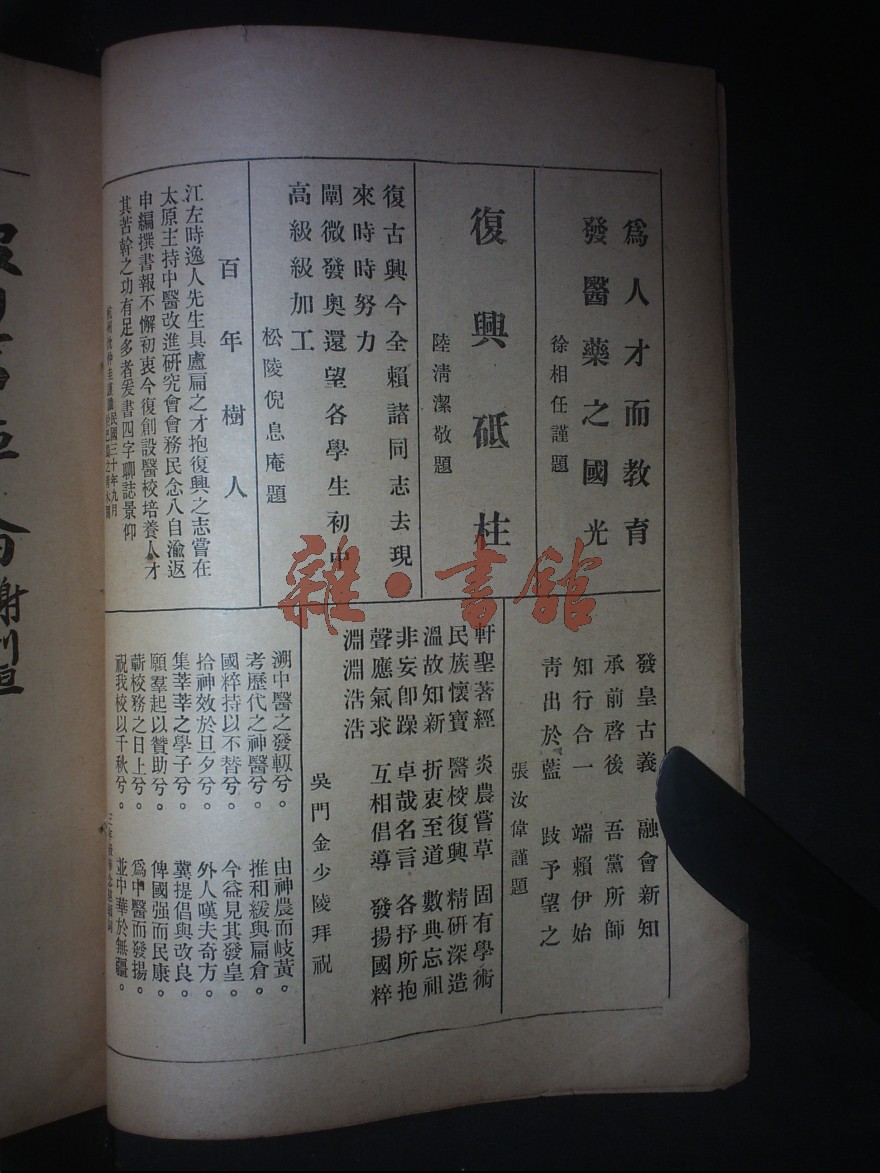 爲人才而教育
發醫藥之國光
徐相任謹題
復興砥柱
陸淸潔敬題
復古興今全賴諸同志去現
來時時努力
闡微發奧還望各學生初中
高級級加工
松陵倪息庵題
百年樹人
江左時逸人先生具盧扁之才抱復興之志嘗在
太原主持中醫改進硏究會會務民念八自渝返
申編撰書報不懈初衷今復創設醫校培養人才
其苦幹之功有足多者爰書四字聊誌景仰
民國三十年九月
發皇古義 融會新知
承前啓後 吾黨所師
知行合一 端賴伊始
靑出於藍 跂予望之
張汝偉謹題
軒聖著經 炎農嘗草 固有學術
民族懷寶 醫校復興 精硏深造
溫故知新 折衷至道 數典忘祖
非妄卽躁 卓哉名言 各抒所抱
聲應氣求 互相倡導 發揚國粹
淵淵浩浩
吳門金少陵拜祝
溯中醫之發軔兮。 由神農而岐黃。
考歷代之神醫兮。 推和緩與扁倉。
國粹持以不替兮。 今益見其發皇。
拾神效於旦夕兮。 外人嘆夫奇方。
集莘莘之學子兮。 冀提倡與改良。
願羣起以贊助兮。 俾國强而民康。
蘄校務之日上兮。 爲中醫而發揚。
祝我校以千秋兮。 並中華於無疆。
雜·書館
謝利恒